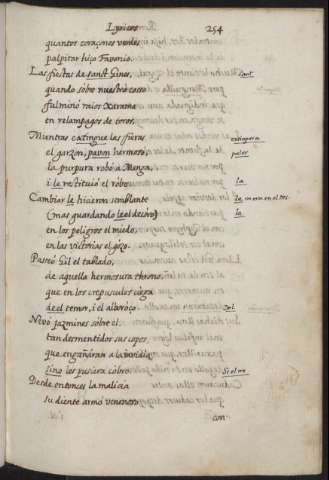 Lyricos 254
quantos coraçones verdes
palpitar hizo Fauonio.
Las fiestas de sanct Gines, Sanct.
quando sobre nuestro coso
fulminò raios Xarama
en relampagos de toros,
Mientras extingue las fieras
el garzon,
la purpura robò a Menga,
i le restituiò el robo. la
Cambiar le hicieron semblante
(mas guardando le el decoro) la
en los peligros el miedo,
en las victorias el gozo.
Paseó Gil el tablado,
de aquella hermosura throno,
que en los crepusculos ciega
de el temor, i el alboroço. Del
Nevò jazmines sobre el
tan desmentidos sus copos,
que engañaran a la invidia,
sino los pusiera cobro. Si el no
Desde entonces la malicia
su diente armò venenoso
con-